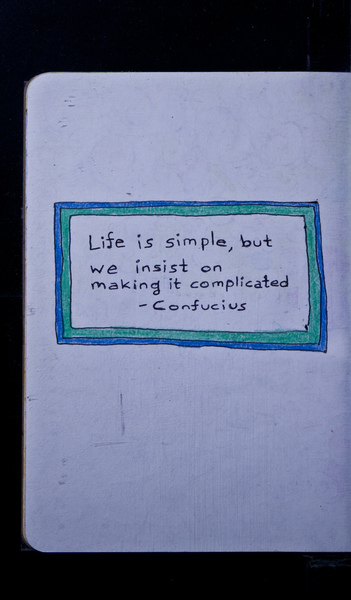 Life is simple, but
we insist on
making it complicated
- Confucius